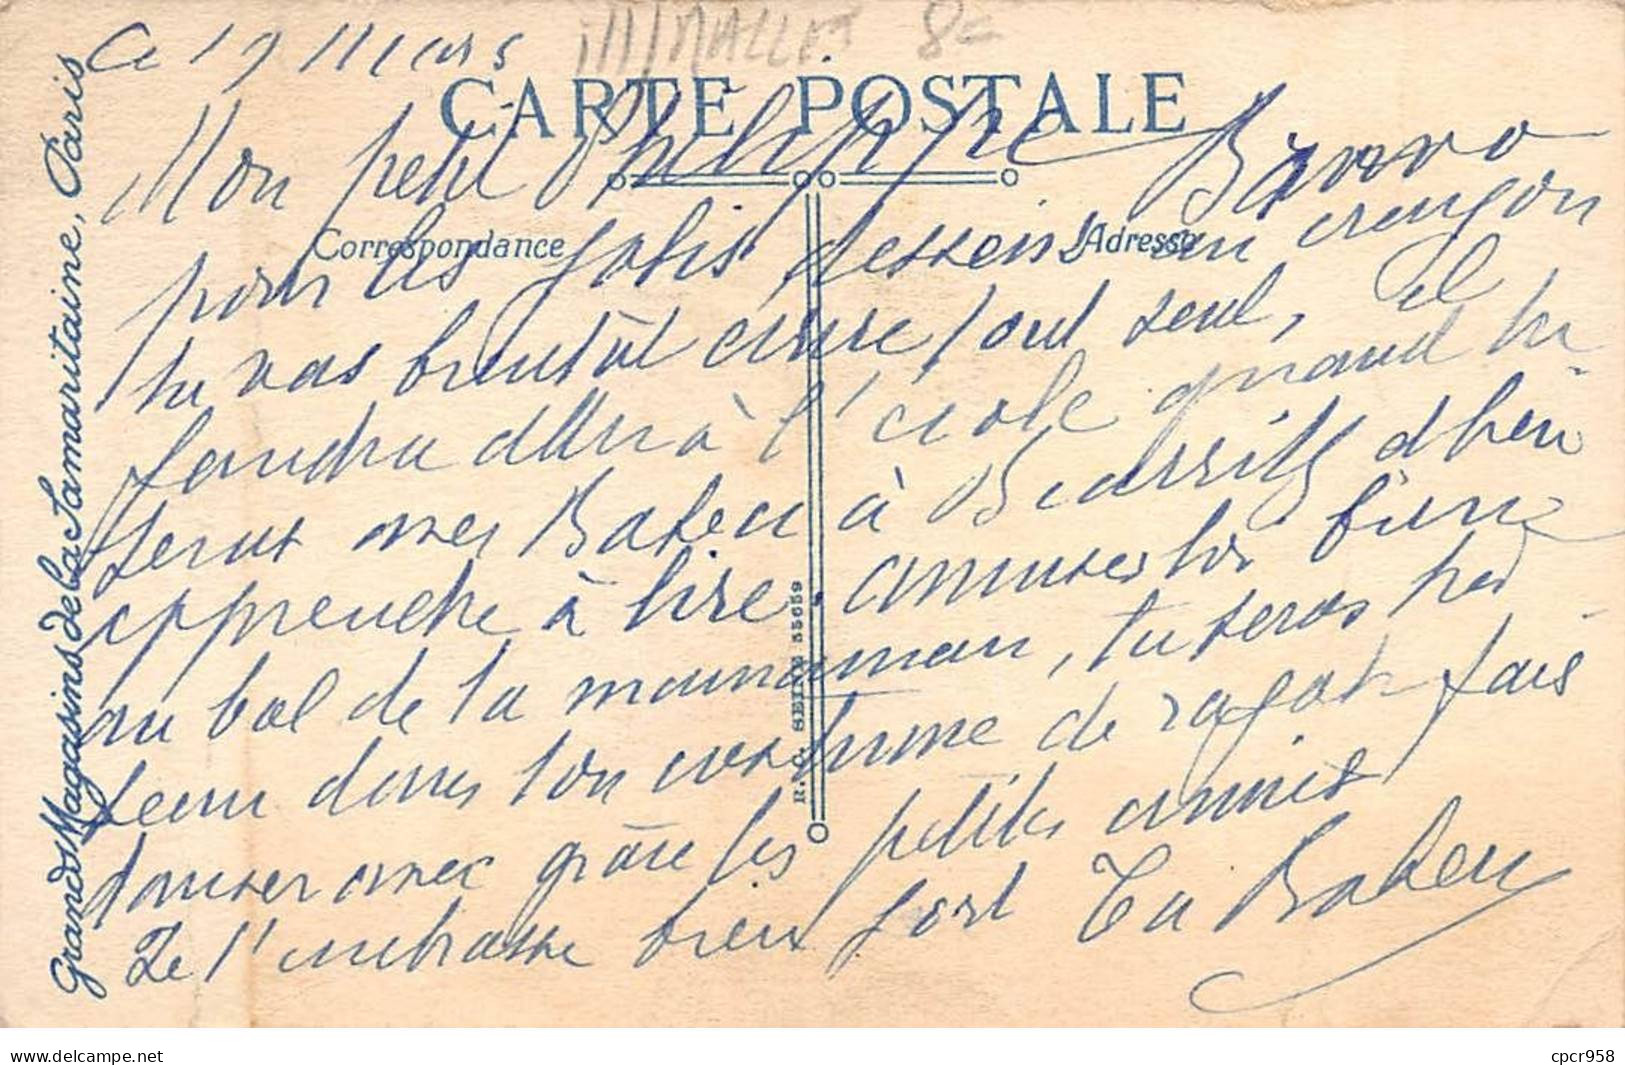 Ce 19 Mars
ill/MALLET 8e
CARTE POSTALE
Correspondance
Adresse
Mon petit Philippe Bravo
pour les jolis dessins au crayon
tu vas bientôt écrire tout seul, il
faudra aller à l'école quand tu
seras avec Baben à Biarritz d'bien
apprendre à lire. amuses toi bien
au bal de ta mamaman, tu seras très
beau dans ton costume de
fais
danser avec grâce les petites amies
Je t'embrasse bien fort Ta Baben
Grands Magasins de la Samaritaine, Paris
R.C. SEINE 55659
cpcr958